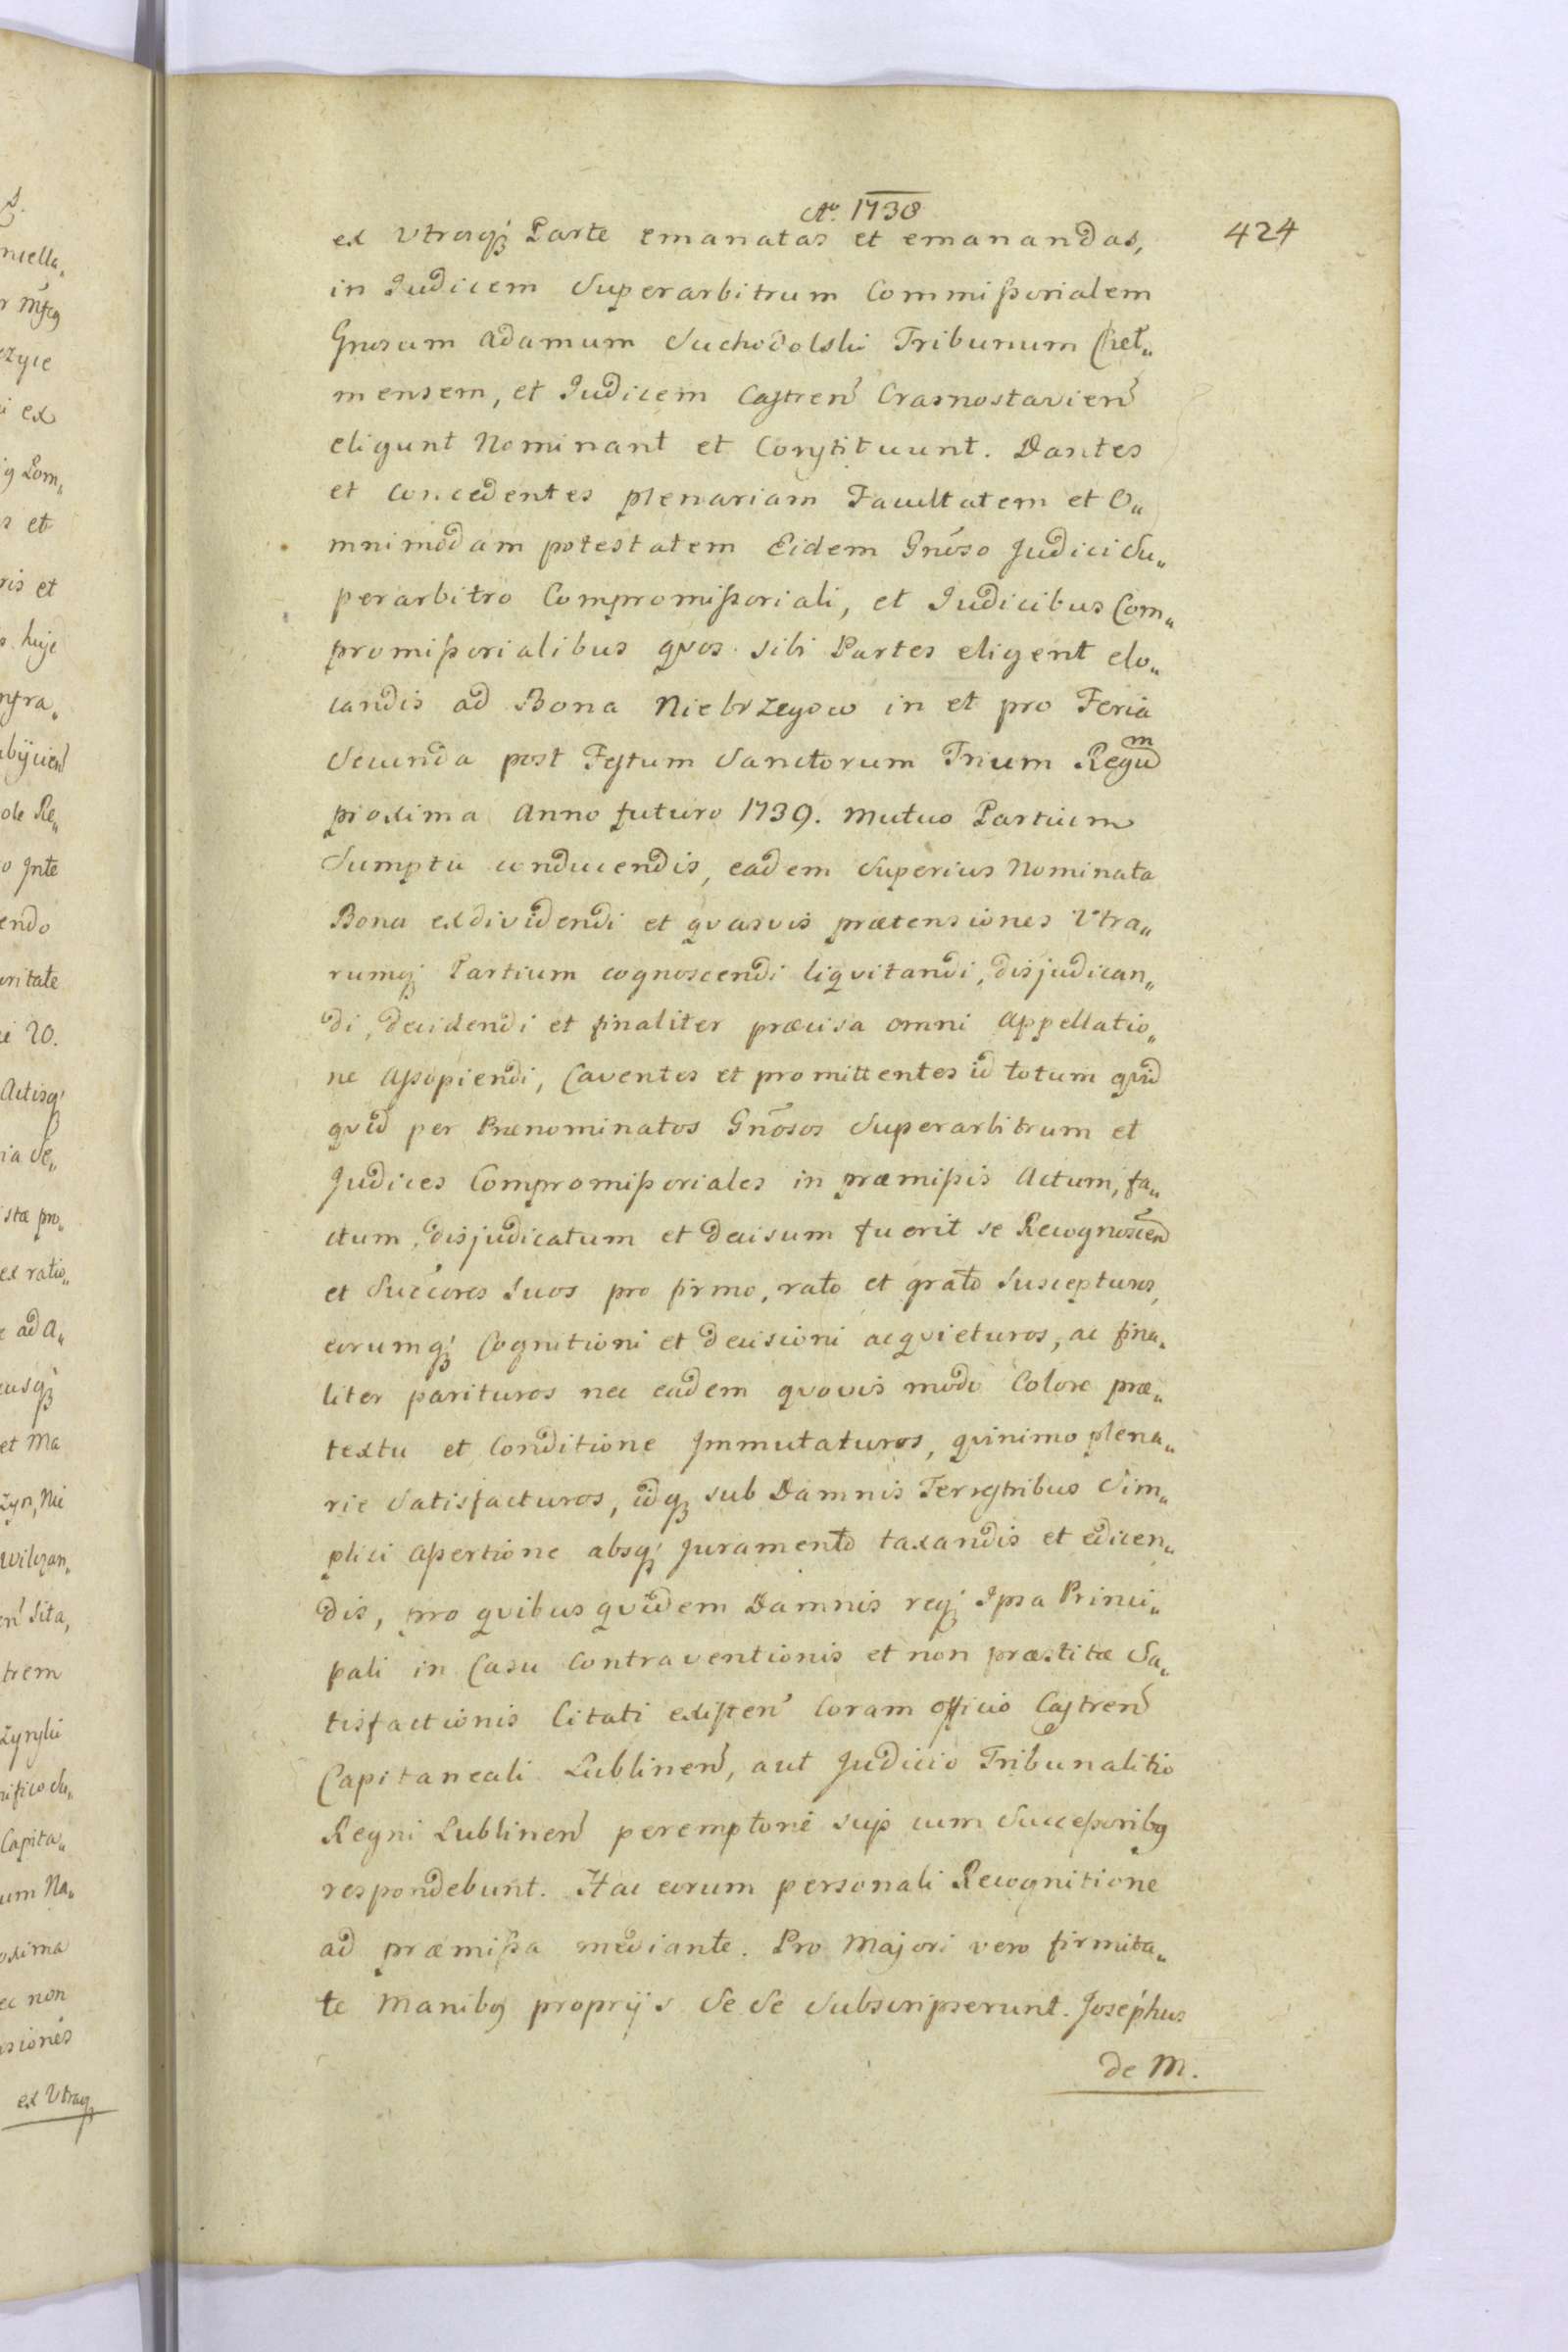 Ao. 1738
424
ex Utraq3 Parte emanatas et emanandas,
in Judicem Superarbitrum Commißorialem
Gnosum Adamum Suchodolski Tribunum Chel„
mensem, et Judicem Castren Crasnostavien
eligunt Nominant et Constituunt. Dantes
et concedentes plenariam Facultatem et O„
mnimodam potestatem Eidem Gnõso Judici Su„
perarbitro Compromißoriali, et Judicibus Com„
promißorialibus qvos sibi Partes eligent elo„
candis ad Bona Niebrzegow in et pro Feria
Secunda post Festum Sanctorum Trium Regum
proxima Anno futuro 1739. mutuo Partium
Sumptu conducendis, eadem Superius Nominata
Bona exdividendi et qvasvis prætensiones Utra„
rumq3 Partium cognoscendi liqvitandi, disjudican„
di, decidendi et finaliter præcisa omni Appellatio„
ne Aßopiendi, Caventes et promittentes id totum qvid
qvid per Prænominatos Gnõsos Superarbitrum et
Judices Compromißoriales in præmißis Actum, fa„
ctum, disjudicatum et decisum fuerit se Recognoscen
et Succores Suos pro firmo, rato et grato Suscepturos,
eorumq3 Cognitioni et decisioni acqvieturos, ac fina„
liter parituros nec eadem qvovis modo Colore præ„
textu et Conditione Jmmutaturos, qvinimo plena„
rie Satisfacturos, idq3 sub Damnis Terrestribus Sim„
plici Aßertione absq3 Juramento taxandis et edicen„
dis, pro qvibus qvidem Damnis req3 Ipsa Princi„
pali in Casu Contraventionis et non præstitæ Sa„
tisfactionis Citati existen Coram Officio Castren
Capitaneali Lublinen, aut Judicio Tribunalitio
Regni Lublinen peremptorie sup cum Succeßorib9
respondebunt. Hac eorum personali Recognitione
ad præmißa mediante. Pro Majori vero firmita„
te Manib9 proprijs Se Se Subscripserunt. Josephus
de M.